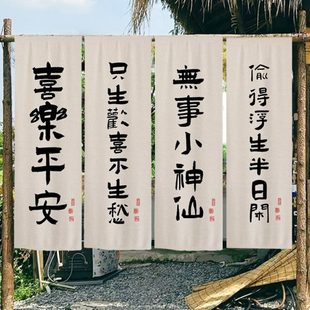 喜樂平安
只生歡喜不生愁
無事小神仙
偷得浮生半日閑